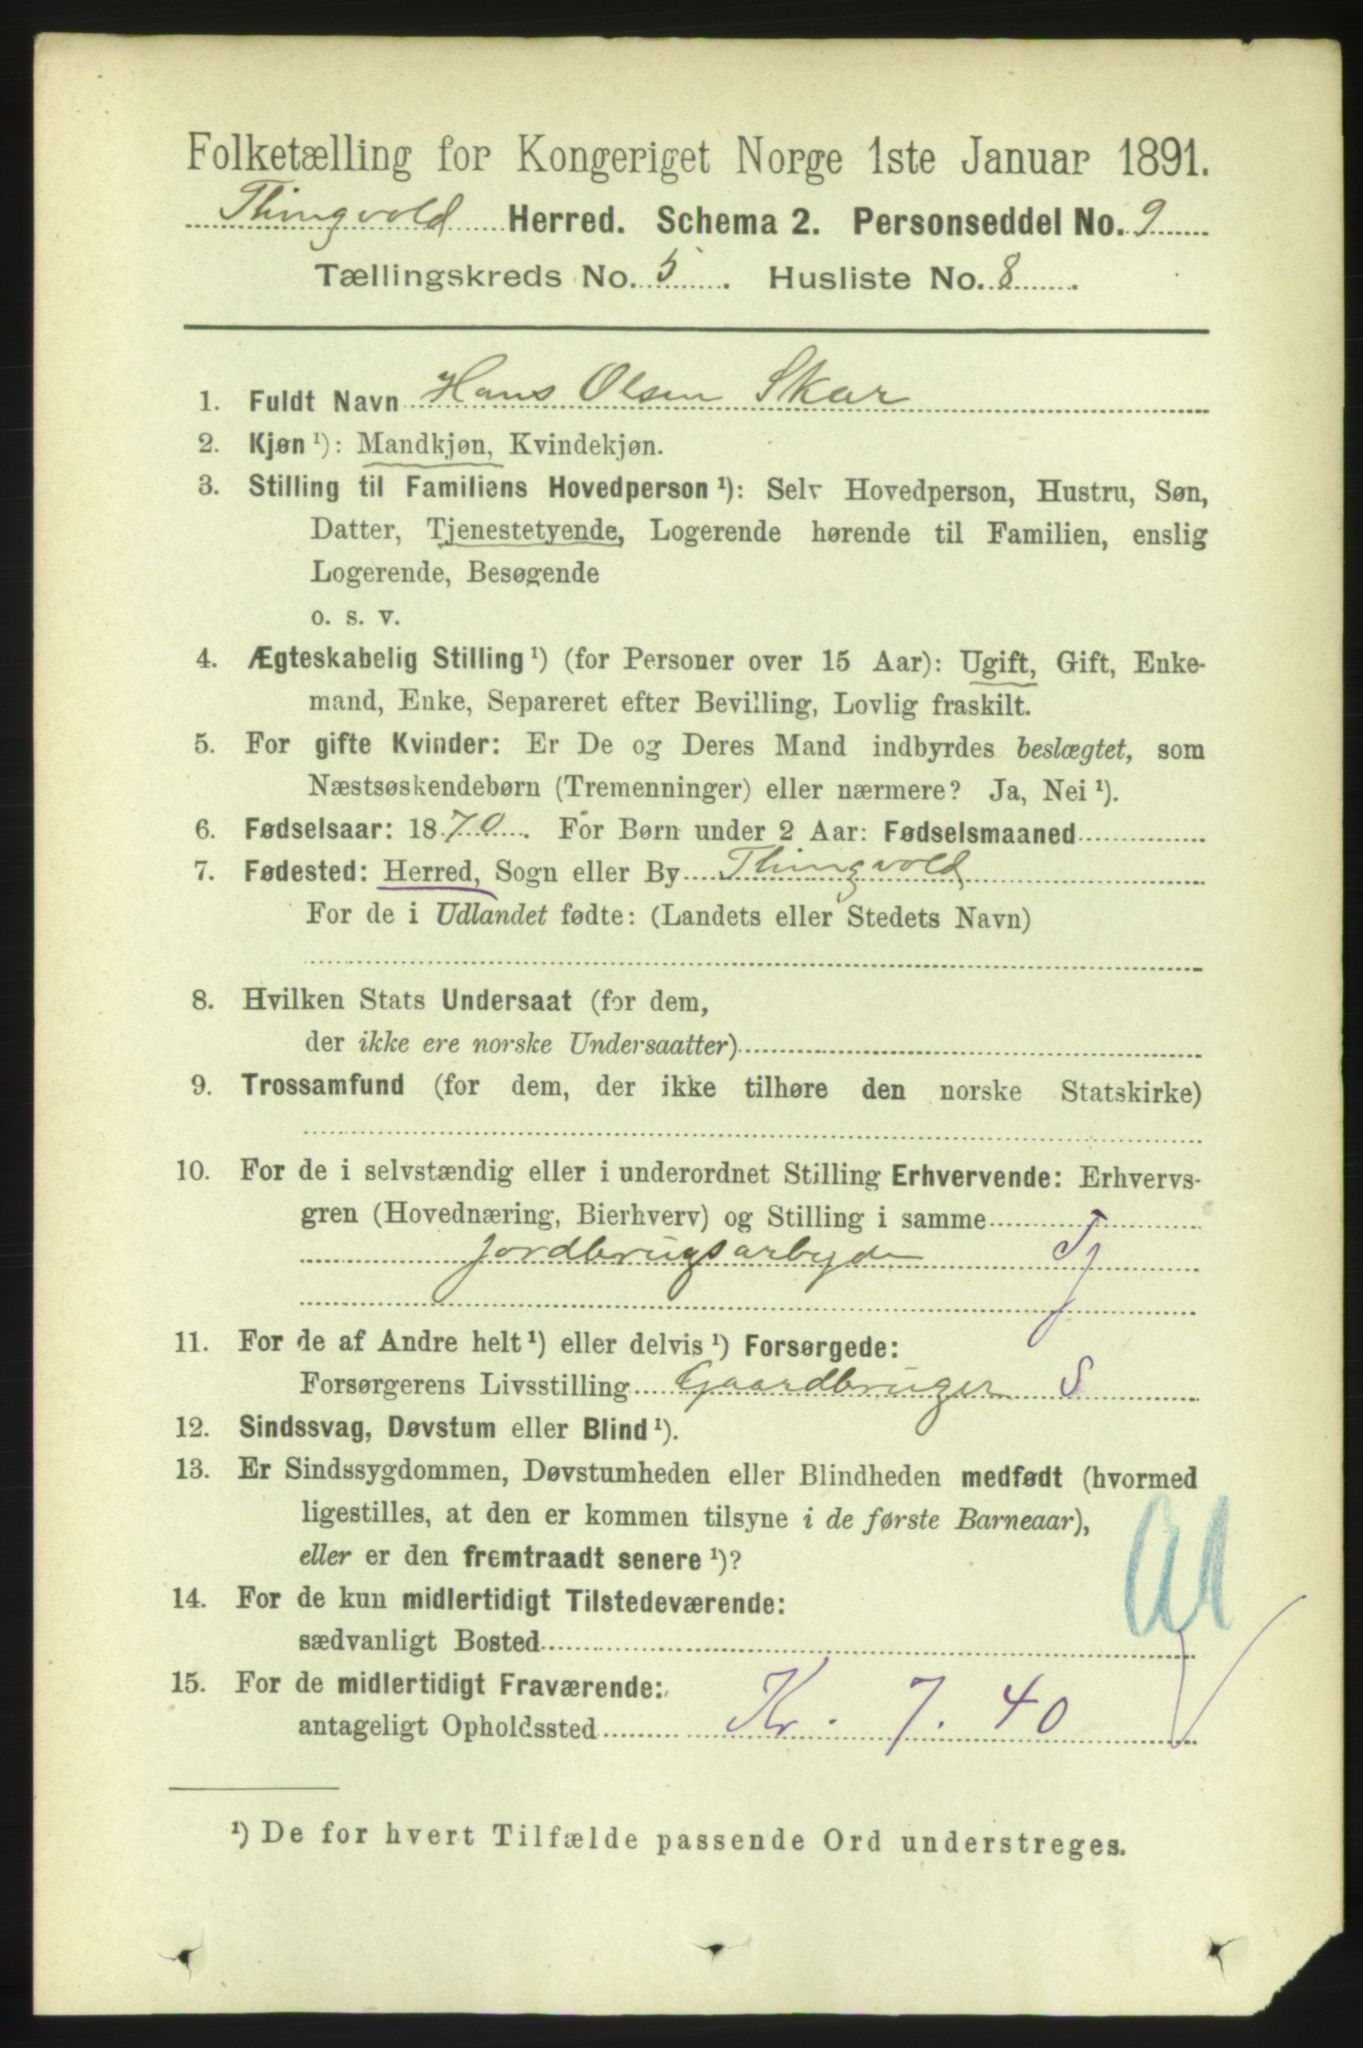 Folketælling for Kongeriget Norge 1ste Januar 1891.
Thingvold Herred. Schema 2. Personseddel No. 9
Tællingskreds No. 5. Husliste No. 8.
1. Fuldt Navn Hans Olsen Skar
2. Kjøn ¹): Mandkjøn, Kvindekjøn.
3. Stilling til Familiens Hovedperson ¹): Selv Hovedperson, Hustru, Søn,
Datter, Tjenestetyende, Logerende hørende til Familien, enslig
Logerende, Besøgende
o. s. v.
4. Ægteskabelig Stilling ¹) (for Personer over 15 Aar): Ugift, Gift, Enke-
mand, Enke, Separeret efter Bevilling, Lovlig fraskilt.
5. For gifte Kvinder: Er De og Deres Mand indbyrdes beslægtet, som
Næstsøskendebørn (Tremenninger) eller nærmere? Ja, Nei ¹).
6. Fødselsaar: 1870. For Børn under 2 Aar: Fødselsmaaned
7. Fødested: Herred, Sogn eller By Thingvold
For de i Udlandet fødte: (Landets eller Stedets Navn)
8. Hvilken Stats Undersaat (for dem,
der ikke ere norske Undersaatter)
9. Trossamfund (for dem, der ikke tilhøre den norske Statskirke)
10. For de i selvstændig eller i underordnet Stilling Erhvervende: Erhvervs-
gren (Hovednæring, Bierhverv) og Stilling i samme
Jordbrugsarbyde Tj
11. For de af Andre helt ¹) eller delvis ¹) Forsørgede:
Forsørgerens Livsstilling Gaardbruger S
12. Sindssvag, Døvstum eller Blind ¹).
13. Er Sindssygdommen, Døvstumheden eller Blindheden medfødt (hvormed
ligestilles, at den er kommen tilsyne i de første Barneaar),
eller er den fremtraadt senere ¹)?
14. For de kun midlertidigt Tilstedeværende:
sædvanligt Bosted
15. For de midlertidigt Fraværende:
antageligt Opholdssted Kr. 7. 40
¹) De for hvert Tilfælde passende Ord understreges.